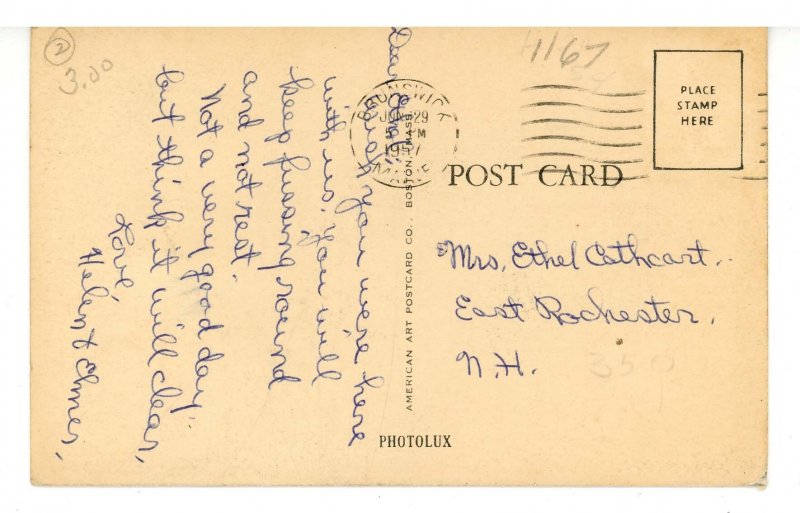 2
3.00
Dear Ethel,
Wish you were here
with us. You will
keep fussing round
and not rest.
Not a very good day
but think it will clear,
Love
Helen & Elmer,
AMERICAN ART POSTCARD CO., BOSTON, MASS.
PHOTOLUX
BRUNSWICK
JUN 29
PM
1957
MAINE
1167
PLACE
STAMP
HERE
POST CARD
Mrs. Ethel Cathcart.
East Rochester,
N.H.